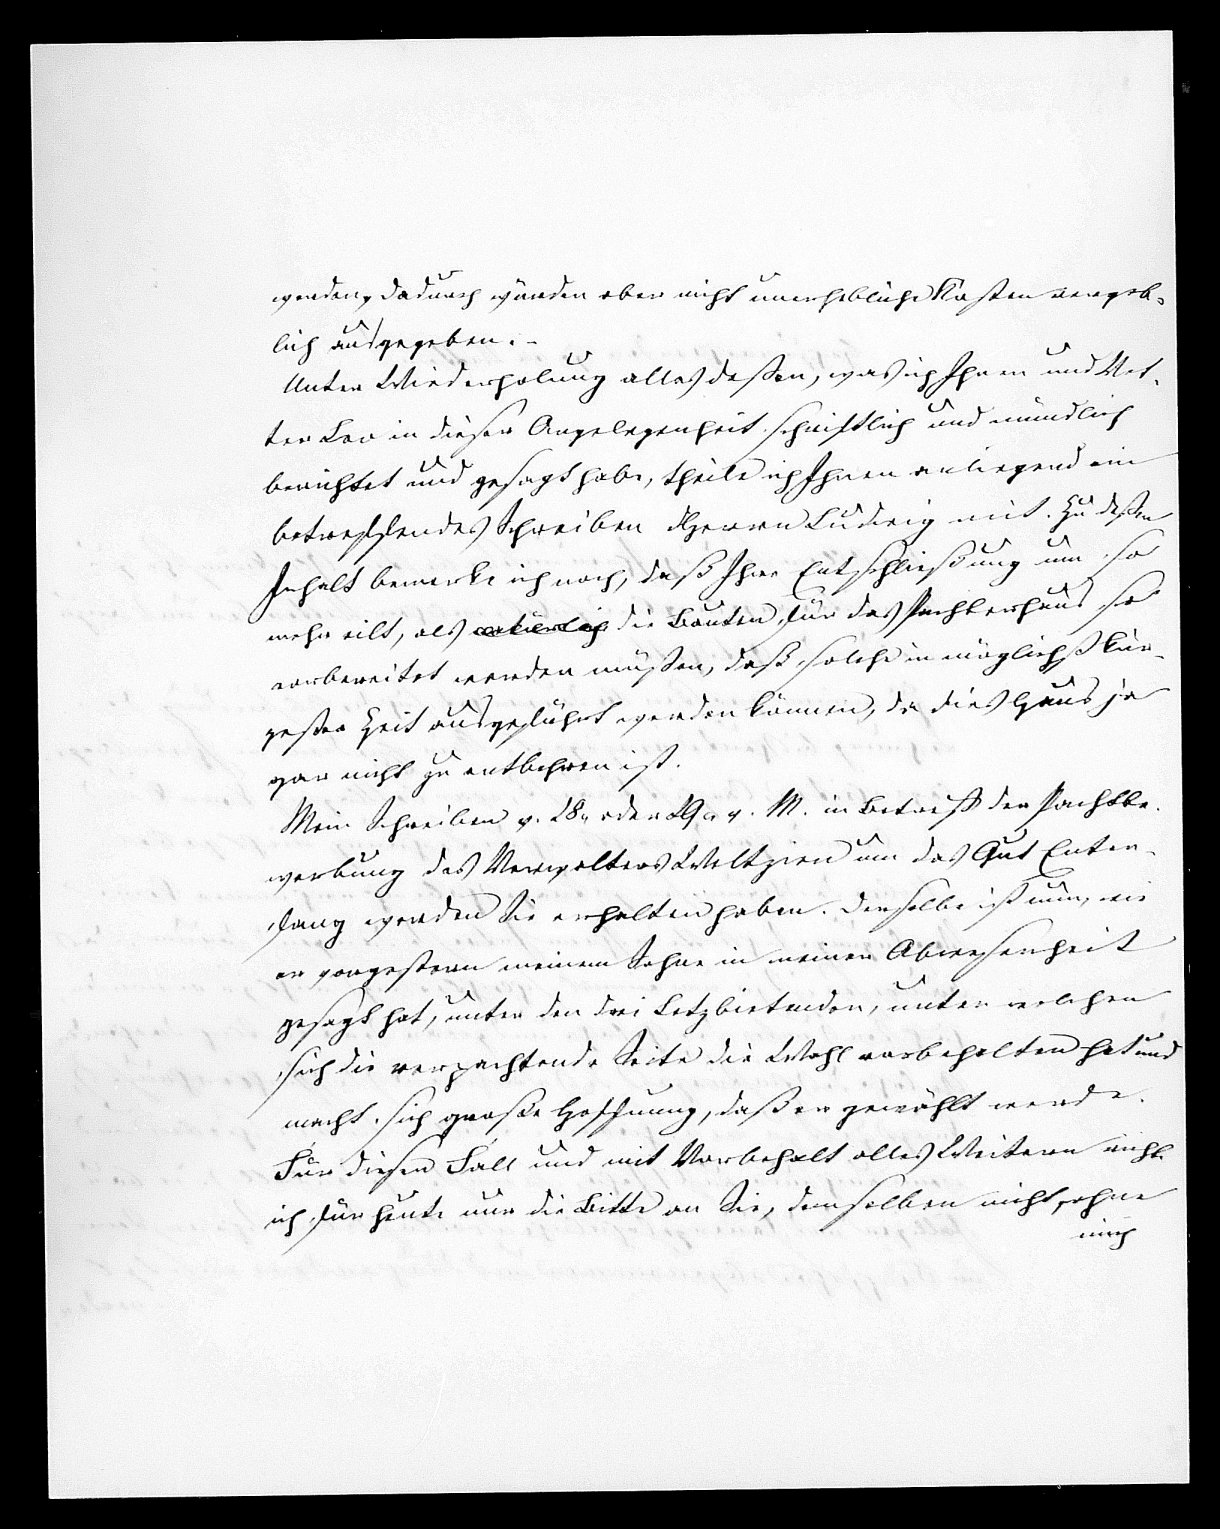 werden, dadurch würden aber nicht unerhebliche Kosten vergeb-
lich ausgegeben. -
Unter Wiederholung alles deßen, was ich Ihnen und Vet-
ter Leo in dieser Angelegenheit schriftlich und mündlich
berichtet und gesagt habe, theile ich Ihnen anliegend ein
betreffendes Schreiben Herrn Ludwig mit. Zu deßen
Inhalt bemerke ich noch, daß Ihre Entschließung um so
mehr eilt, als die Bauten für das Pachterhaus so
vorbereitet werden müßen, daß solche in möglichst kür-
zester Zeit ausgeführt werden können, da dies Haus ja
gar nicht zu entbehren ist.
Mein Schreiben v. 28. oder 29. v. M. in Betreff der Pachtbe-
werbung des Verwalters Weltzien um das Gut Enten-
fang werden Sie erhalten haben. Derselbe ist nun, wie
er vorgestern meinem Sohne in meiner Abwesenheit
gesagt hat, unter den drei Letzbietenden, unter welchen
sich die verpachtende Seite die Wahl vorbehalten hat und
macht sich große Hoffnung, daß er gewählt werde.
Für diesen Fall und mit Vorbehalt alles Weitern richte
ich für heute nur die Bitte an Sie, demselben nicht, ohne
mich